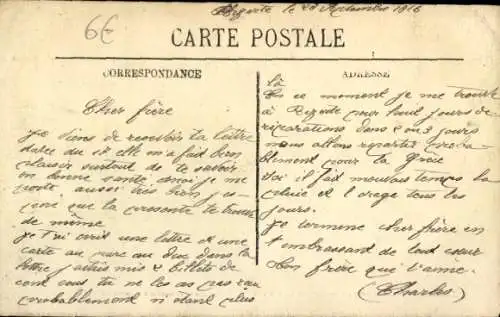 Bizerte le 28 Septembre 1916
6€
CARTE POSTALE
CORRESPONDANCE
ADRESSE
Cher frère
Je viens de recevoir ta lettre
datée du 17 elle m'a fait bien
plaisir surtout de te savoir
en bonne santé moi je me
porte aussi très bien j'es-
père que la présente te trouve
de même.
Je t'ai écrit une lettre et une
carte au parc au duc dans la
lettre j'avais mis 2 billets de
cent sous tu ne les as pas eus
probablement n'étant plus
là
En ce moment je me trouve
à Bizerte pour huit jours de
réparations dans 2 ou 3 jours
nous allons repartir proba-
blement pour la Grèce
Ici il fait mauvais temps la
pluie et l'orage tous les
jours.
Je termine cher frère en
t'embrassant de tout cœur
ton frère qui t'aime.
(Charles)